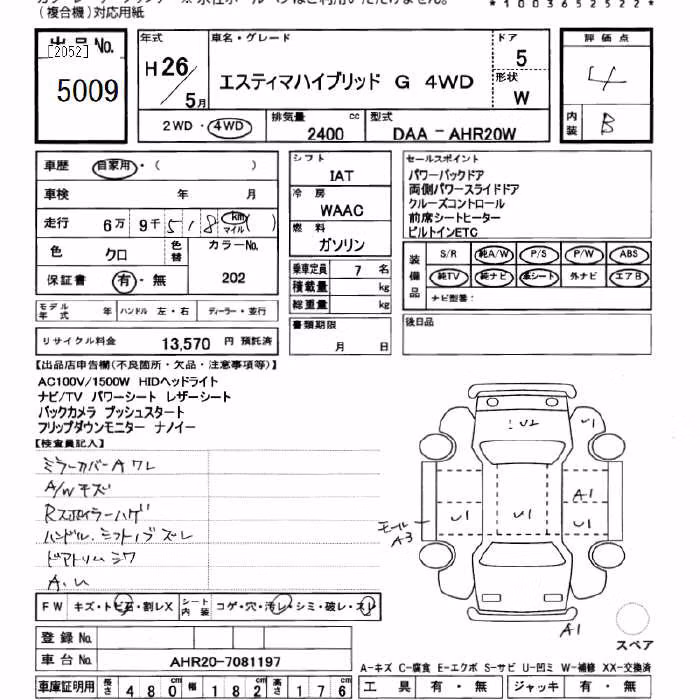 (複合機)対応用紙
*1003652522*
出品 No.
[2052]
5009
年式
H 26
5月
車名・グレード
エスティマハイブリッド G 4WD
ドア
5
形状
W
評価点
4
内装
B
2WD・4WD
排気量 cc
2400
型式
DAA-AHR20W
車歴 自家用・( )
車検 年 月
走行 6万 9千 518 km マイル ( )
色 クロ
色替
カラーNo.
202
保証書 有・無
モデル年式 年
ハンドル 左・右
ディーラー・並行
リサイクル料金 13,570 円 預託済
シフト
IAT
冷房
WAAC
燃料
ガソリン
乗車定員 7 名
積載量 kg
総重量 kg
書類期限
月 日
セールスポイント
パワーバックドア
両側パワースライドドア
クルーズコントロール
前席シートヒーター
ビルトインETC
装備品
S/R 純A/W P/S P/W ABS
純TV 純ナビ 革シート 外ナビ エアB
ナビ型番:
後日品
【出品店申告欄(不良箇所・欠品・注意事項等)】
AC100V/1500W HIDヘッドライト
ナビ/TV パワーシート レザーシート
バックカメラ プッシュスタート
フリップダウンモニター ナノイー
【検査員記入】
ミラーカバーAワレ
A/Wキズ
Rスポイラーハゲ
ハンドル.シフトノブズレ
ドアトリムシワ
A.U
U2
U1
A1
U1
U1
U1
モール
A3
A1
スペア
FW キズ・トビ石・割レX
シート内装 コゲ・穴・汚レ・シミ・破レ・スレ
登録 No.
車台 No. AHR20-7081197
車庫証明用 長さ 480 cm 幅 182 cm 高さ 176 cm
A-キズ C-腐食 E-エクボ S-サビ U-凹ミ W-補修 XX-交換済
工具 有・無 ジャッキ 有・無